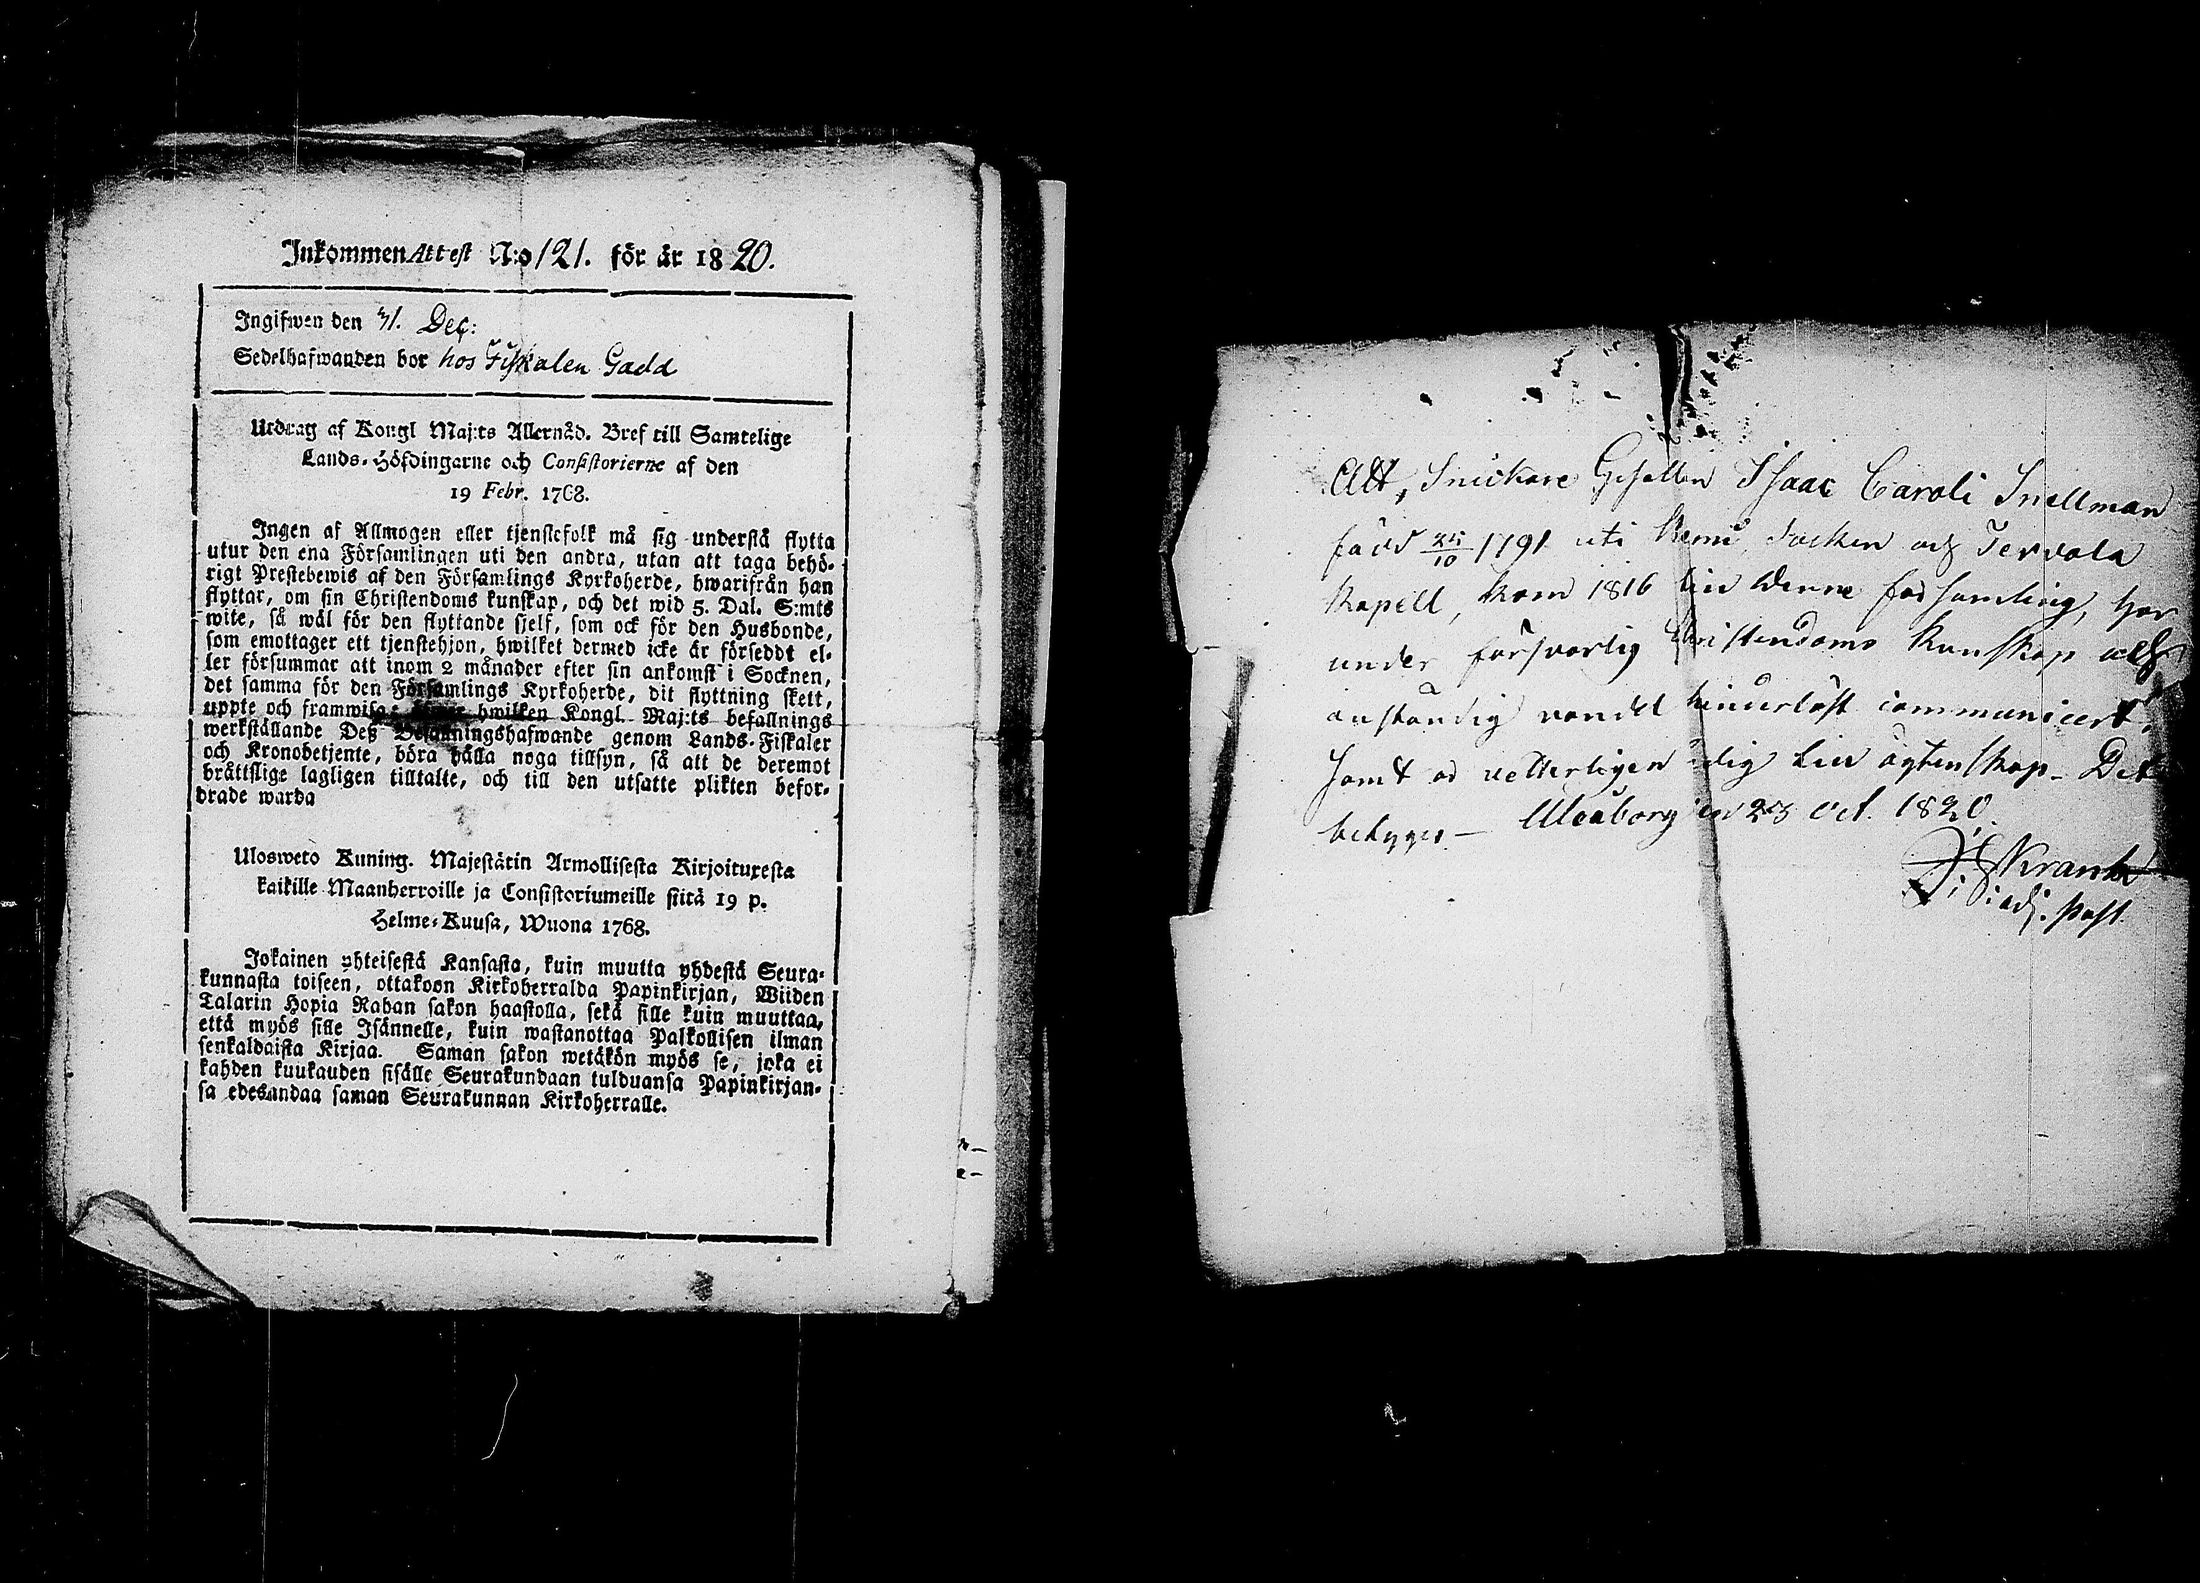 Inkommen Attest N:o 121. för år 1820.
Ingifwen den 31. Dec:
Sedelhafwanden bor hos Fiskalen Gadd
Utdrag af Kongl Maj:ts Allernåd. Bref till Samtelige
Lands-Höfdingarne och Consistorierne af den
19 Febr. 1768.
Ingen af Allmogen eller tjenstefolk må sig understå flytta
utur den ena Församlingen uti den andra, utan att taga behö-
rigt Prestebewis af den Församlings Kyrkoherde, hwarifrån han
flyttar, om sin Christendoms kunskap, och det wid 5. Dal. S:mts
wite, så wäl för den flyttande sjelf, som ock för den Husbonde,
som emottager ett tjenstehjon, hwilket dermed icke är försedt el-
ler försummar att inom 2 månader efter sin ankomst i Socknen,
det samma för den Församlings Kyrkoherde, dit flyttning skett,
uppte och framwisa; hwilken Kongl. Maj:ts befallnings
werkställande Deß Befallningshafwande genom Lands-Fiskaler
och Kronobetjente, böra hålla noga tillsyn, så att de deremot
bråttslige lagligen tilltalte, och till den utsatte plikten befor-
drade warda
Ulosweto Kuning. Majestätin Armollisesta Kirjoituxesta
kaikille Maanherroille ja Consistoriumeille siitä 19 p.
Helme-Kuusa, Wuona 1768.
Jokainen yhteisestä Kansasta, kuin muutta yhdestä Seura-
kunnasta toiseen, ottakoon Kirkoherralda Papinkirjan, Wiiden
Talarin Hopia Rahan sakon haastolla, sekä sille kuin muuttaa,
että myös sille Isännelle, kuin wastanottaa Palkollisen ilman
senkaldaista Kirjaa. Saman sakon wetäkön myös se, joka ei
kahden kuukauden sisälle Seurakundaan tulduansa Papinkirjan-
sa edesandaa saman Seurakunnan Kirkoherralle.
Att, Snickare Gesellen Isaac Caroli Snellman
född 25/10 1791 uti Kemi Socken och Tervola
Kapell, kom 1816 till denne församling, har
under försvarlig Christendoms Kunskap och
anständig vandel hinderlöst communicert,
samt ad vetterligen ledig till ägtenskap. Det
betygas – Uleåborg den 23 Oct. 1820.
Krank
adj. past.